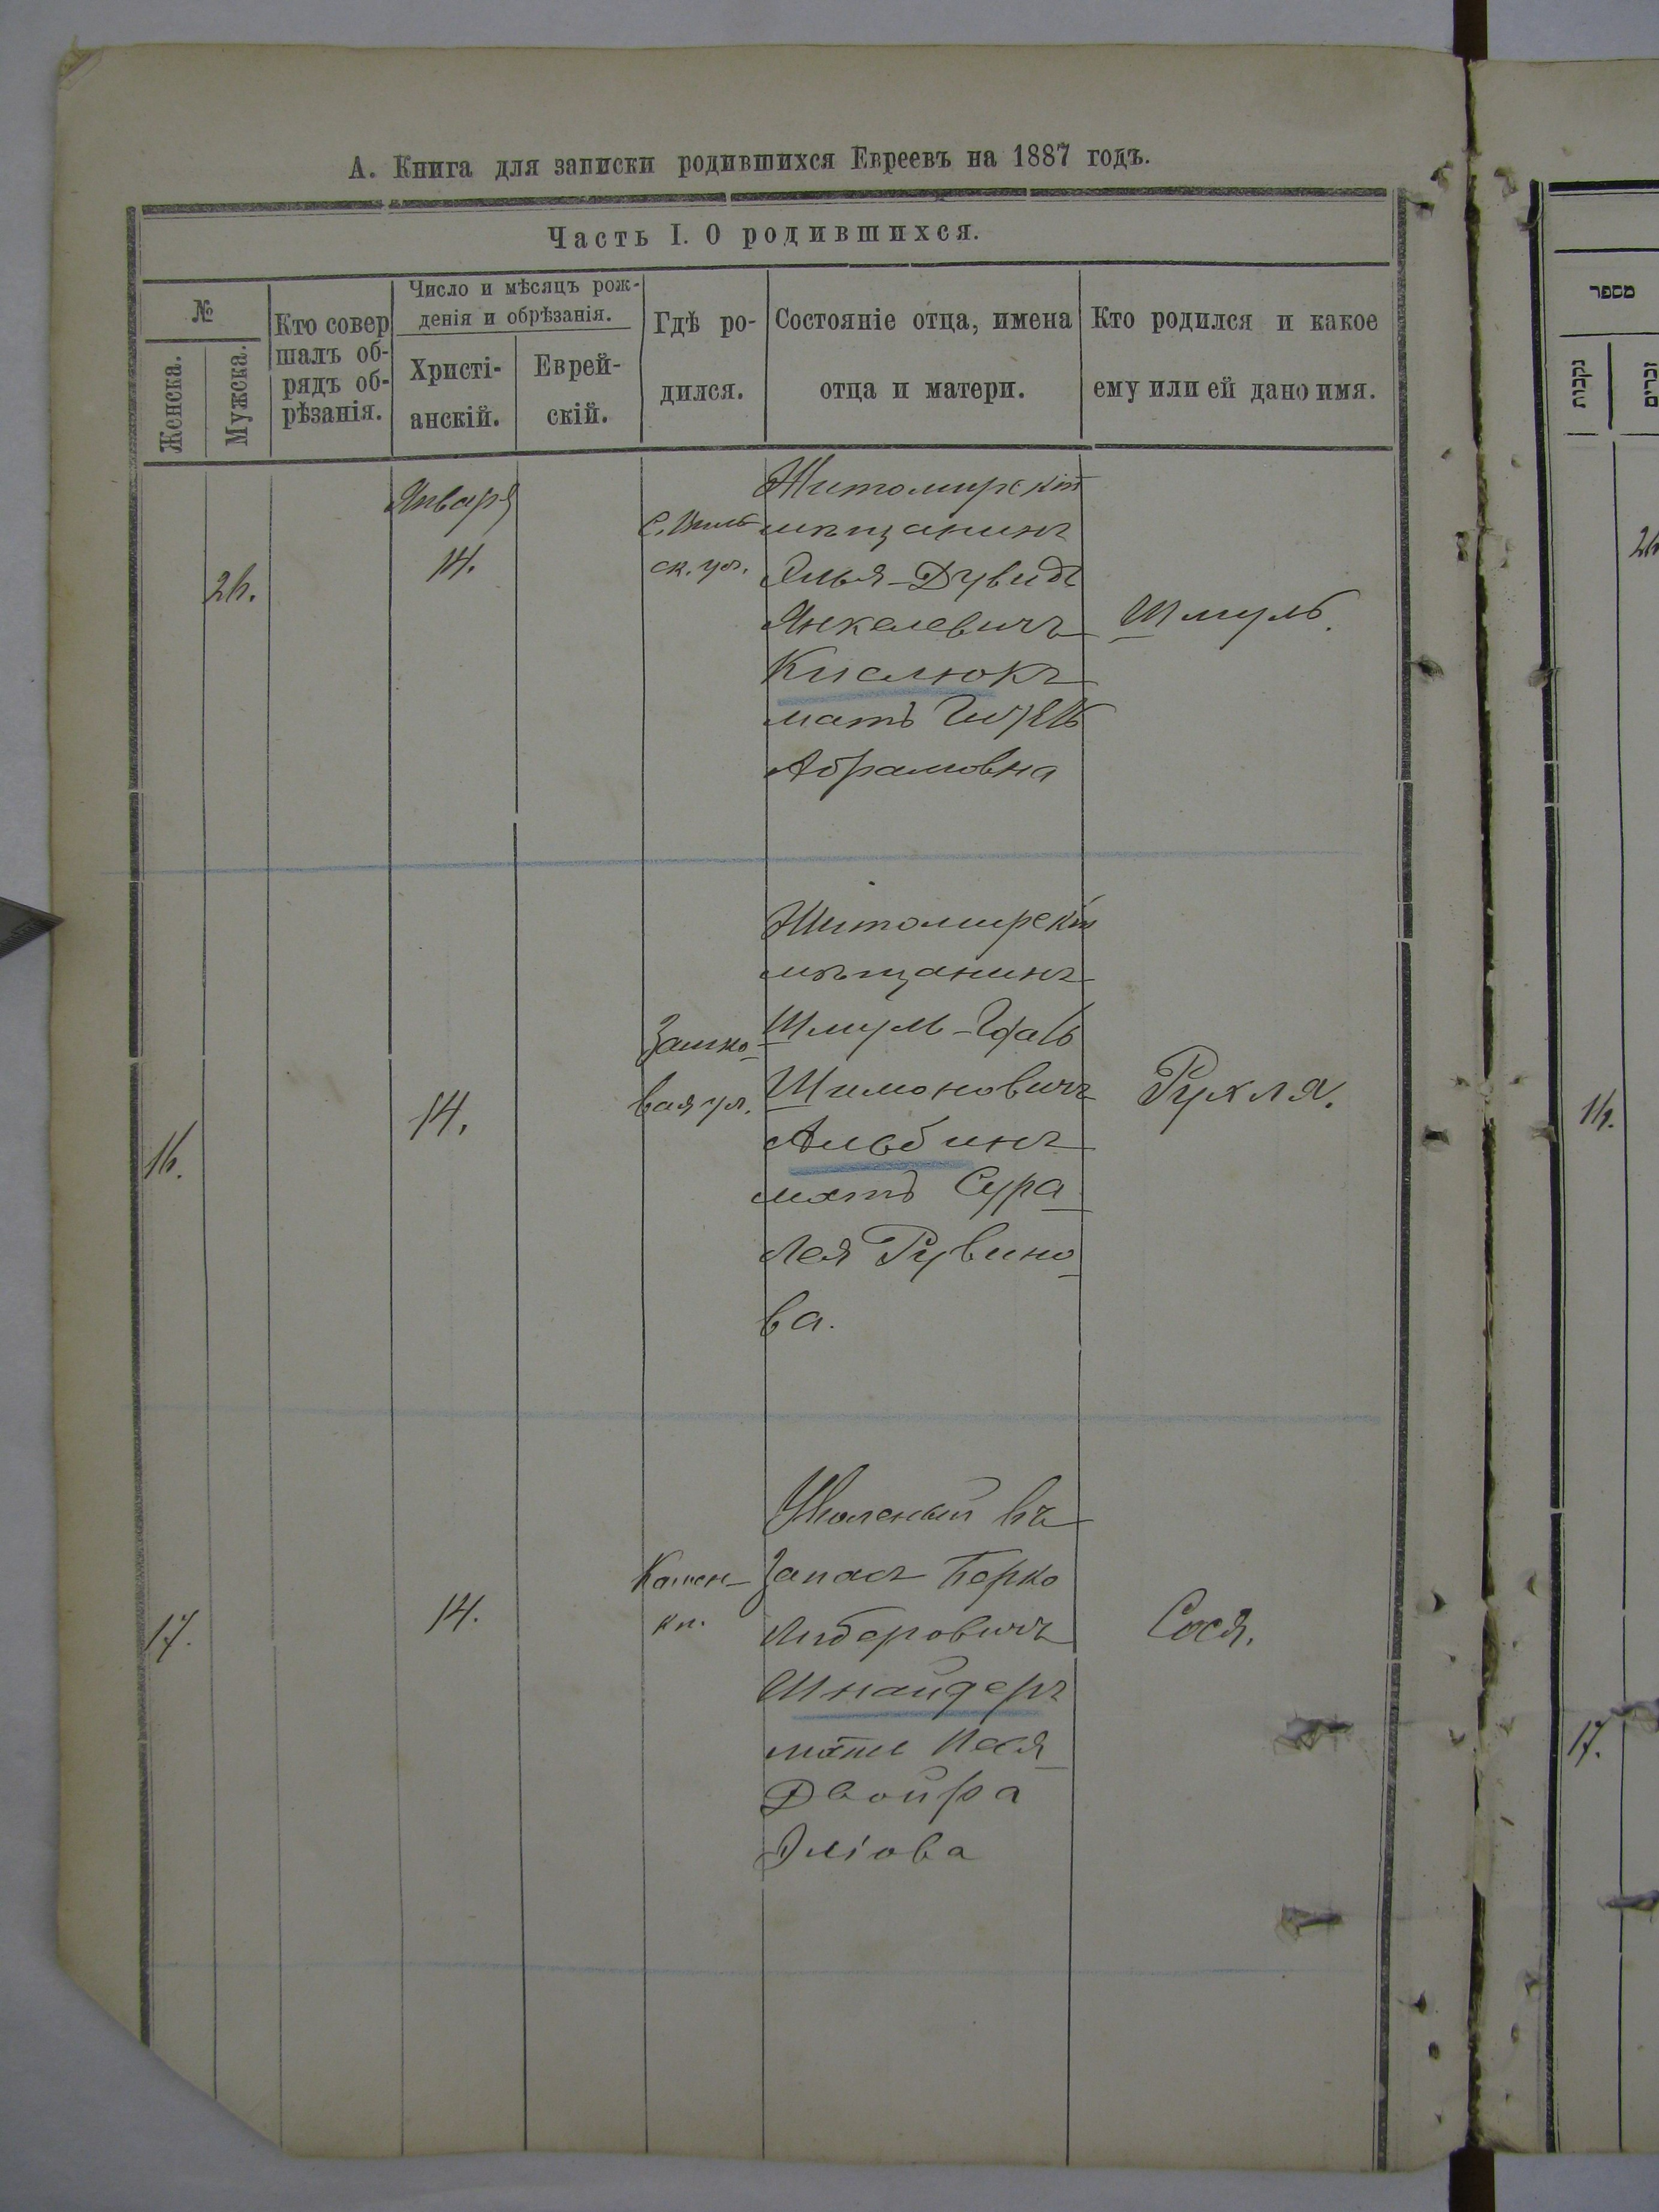 А. Книга для записки родившихся Евреевъ на 1887 годъ.
Часть I. О родившихся.
№
Женска.
Мужска.
Кто совер
шалъ об-
рядъ об-
рѣзанія.
Число и мѣсяцъ рож-
денія и обрѣзанія.
Христі-
анскій.
Еврей-
скій.
Гдѣ ро-
дился.
Состояніе отца, имена
отца и матери.
Кто родился и какое
ему или ей дано имя.
מספר
נקבות
זכרים
Января
14.
ск. ул.
Житомирскій
мѣщанинъ
Дувидъ
Янкелевичъ
Кислюкъ
мать
Абрамовна
Шмуль.
16.
14.
Замко-
вая ул.
Житомирскій
мѣщанинъ
Шмуль-
Шимоновичъ
Альбинъ
мать Сура
Лея Рувино-
ва.
Рухля.
17.
14.
Камен-
Уволеный въ
Запасъ Берко
Либеровичъ
Шнайдеръ
мать Песя
Двойра
Эліова
Сося.
16.
17.